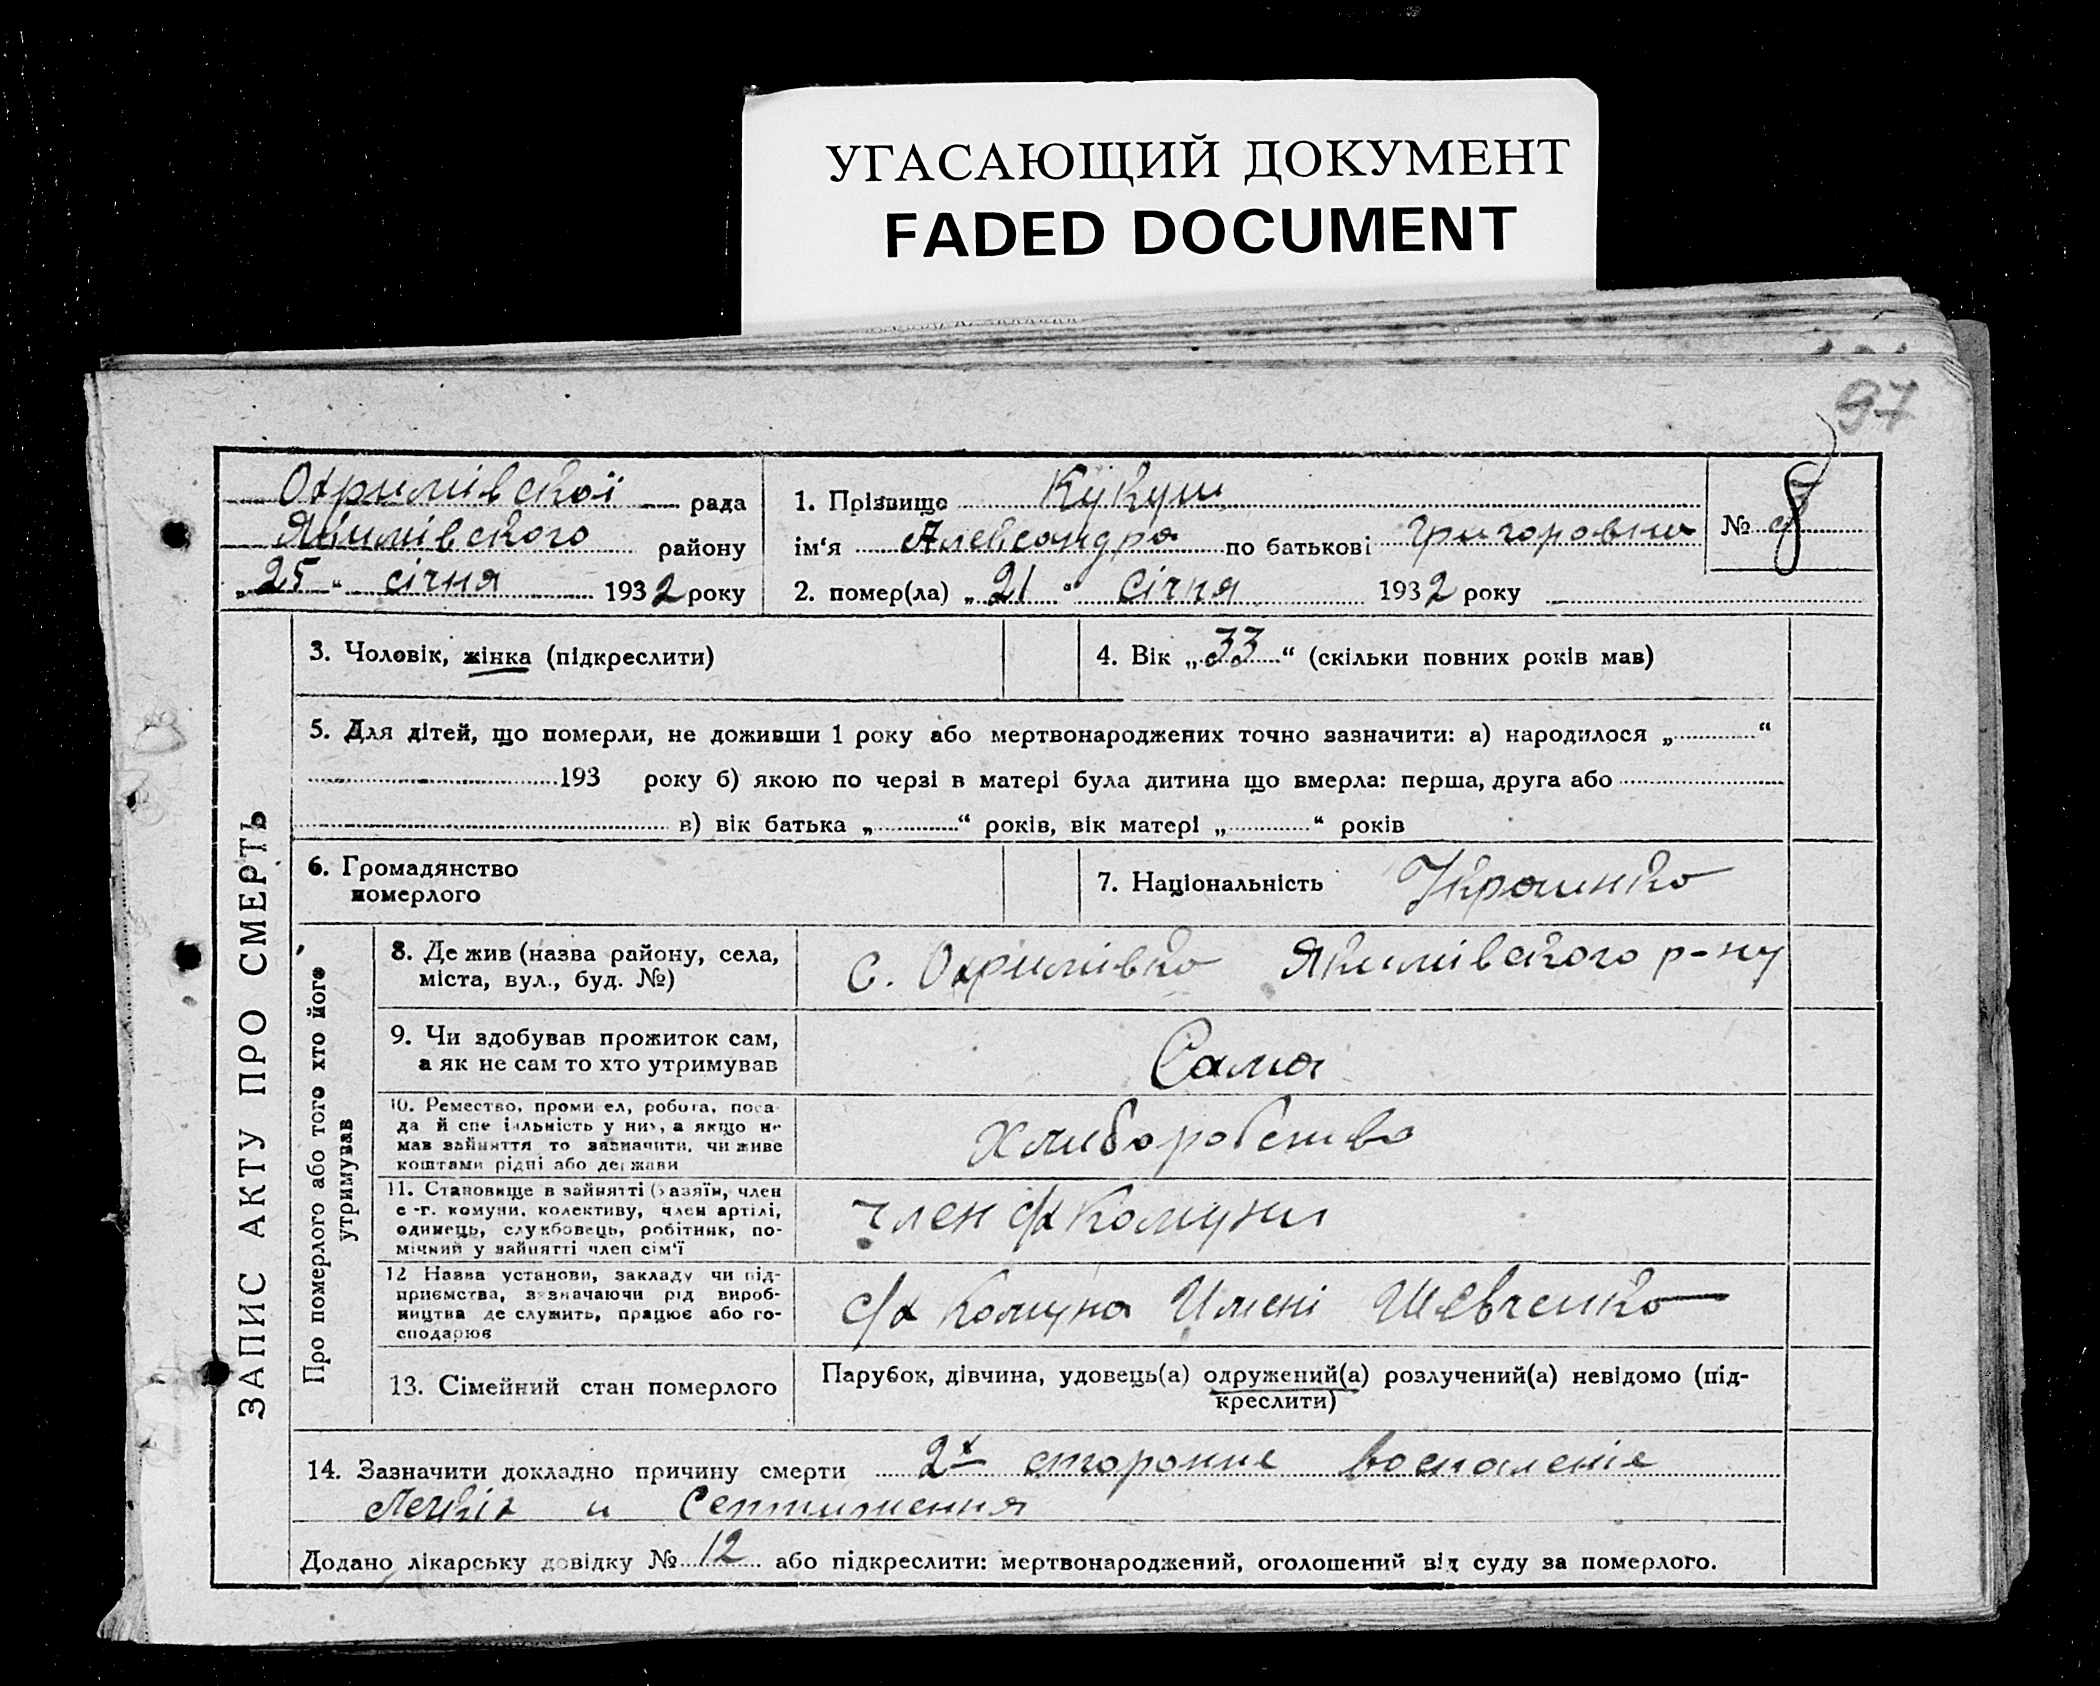 УГАСАЮЩИЙ ДОКУМЕНТ
FADED DOCUMENT
97
Охримівскої рада
Якимівского району
„25“ січня 1932 року
1. Прізвище Кукуш
ім‘я Александра по батькові Григоровна
2. помер(ла) „21“ Січня 1932 року
№ 8
ЗАПИС АКТУ ПРО СМЕРТЬ
3. Чоловік, жінка (підкреслити)
4. Вік „33“ (скільки повних років мав)
5. Для дітей, що померли, не доживши 1 року або мертвонароджених точно зазначити: а) народилося „ “
193 року б) якою по черзі в матері була дитина що вмерла: перша, друга або
в) вік батька „ “ років, вік матері „ “ років
6. Громадянство
померлого
7. Національність Украинка
Про померлого або того хто його
утримував
8. Де жив (назва району, села,
міста, вул., буд. №)
с. Охримівка Якимівского р-ну
9. Чи здобував прожиток сам,
а як не сам то хто утримував
Сама
10. Ремество, промисел, робота, поса-
да й спеціяльність у них, а якщо не
мав зайняття то зазначити, чи живе
коштами рідні або держави
Хлиборобство
11. Становище в зайнятті (хазяїн, член
с.-г. комуни, колективу, член артілі,
одинець, службовець, робітник, по-
мічний у зайнятті член сім‘ї
член с/х комуни
12 Назва установи, закладу чи під-
приємства, зазначаючи рід вироб-
ництва де служить, працює або го-
сподарює
с/х комуна Имені Шевченко
13. Сімейний стан померлого
Парубок, дівчина, удовець(а) одружений(а) розлучений(а) невідомо (під-
креслити)
14. Зазначити докладно причину смерти 2х сторонне воспаленіе
Легкіх и
Додано лікарську довідку № 12 або підкреслити: мертвонароджений, оголошений від суду за померлого.